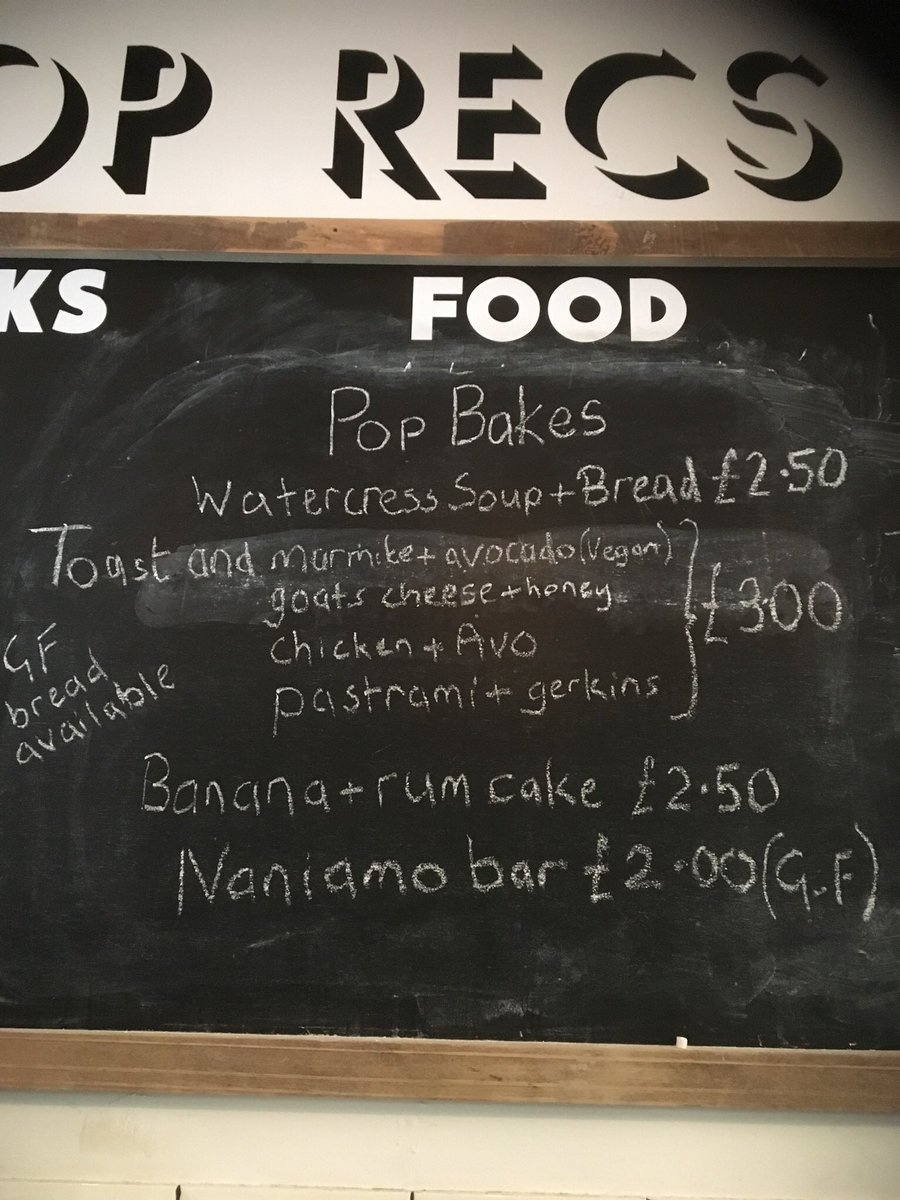 OP RECS
KS
FOOD
Pop Bakes
Watercress Soup + Bread £2.50
Toast and marmite + avocado (Vegan)
goats cheese + honey
£3.00
chicken + Avo
pastrami + gerkins
GF
bread
available
Banana + rum cake £2.50
Naniamo bar £2.00 (G.F)